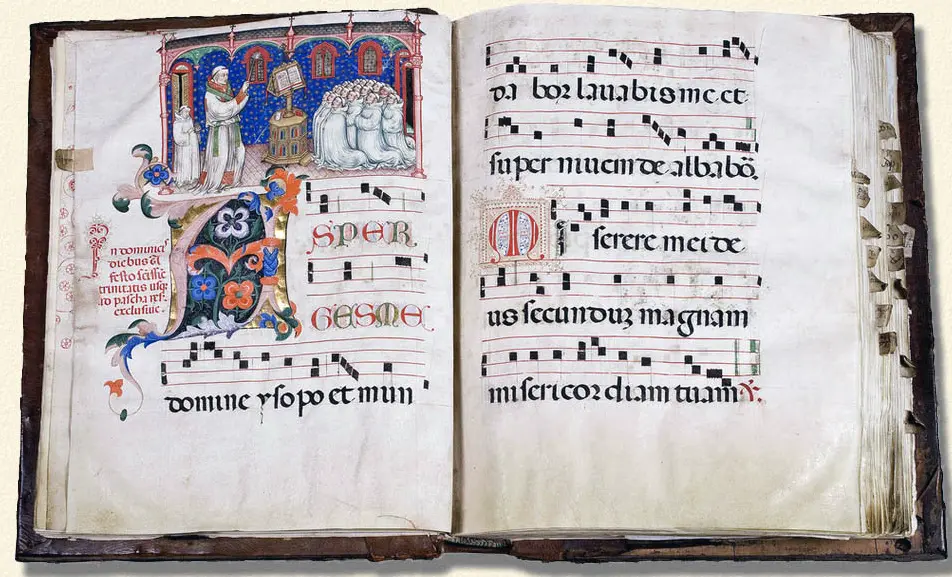 In dominicis
diebus a
festo
trinitatis usqz
pascha res.
exclusiue.
ASPER
GESME
domine ysopo et mun
da bor lauabis me et
super niuem de alba bor.
Miserere mei de
us secunduz magnam
misericordiam tuam V.